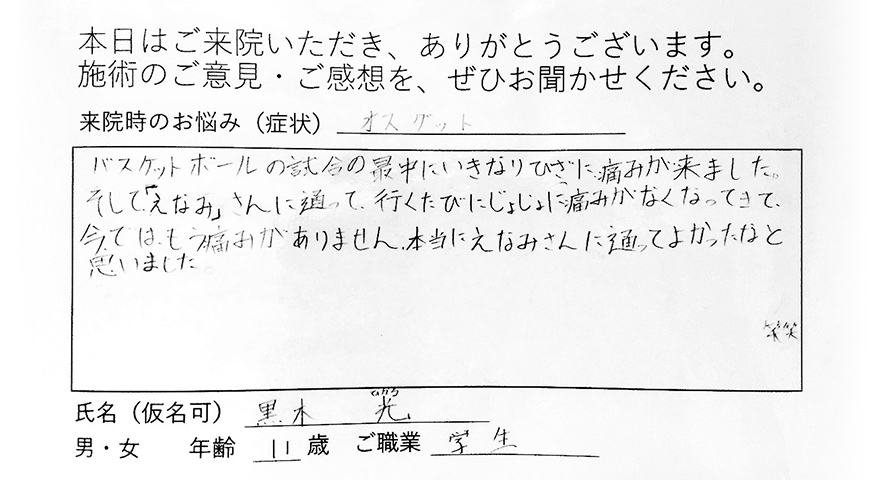 本日はご来院いただき、ありがとうございます。
施術のご意見・ご感想を、ぜひお聞かせください。
来院時のお悩み（症状） オスグット
バスケットボールの試合の最中にいきなりひざに痛みが来ました。
そして「えなみ」さんに通って、行くたびにじょじょに痛みがなくなってきて、
今では、もう痛みがありません。本当にえなみさんに通ってよかったなと
思いました。
笑笑
氏名（仮名可） 黒木 光
男・女 年齢 11 歳 ご職業 学生